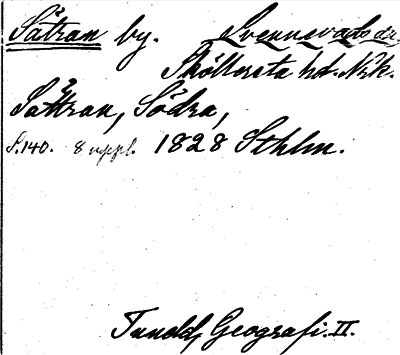 Sätran by. Svennevads sn,
Sköllersta hd. Nrk.
Sättran, Södra,
S. 140. 8 uppl. 1828 Sthlm.
Tuneld, Geografi. II.